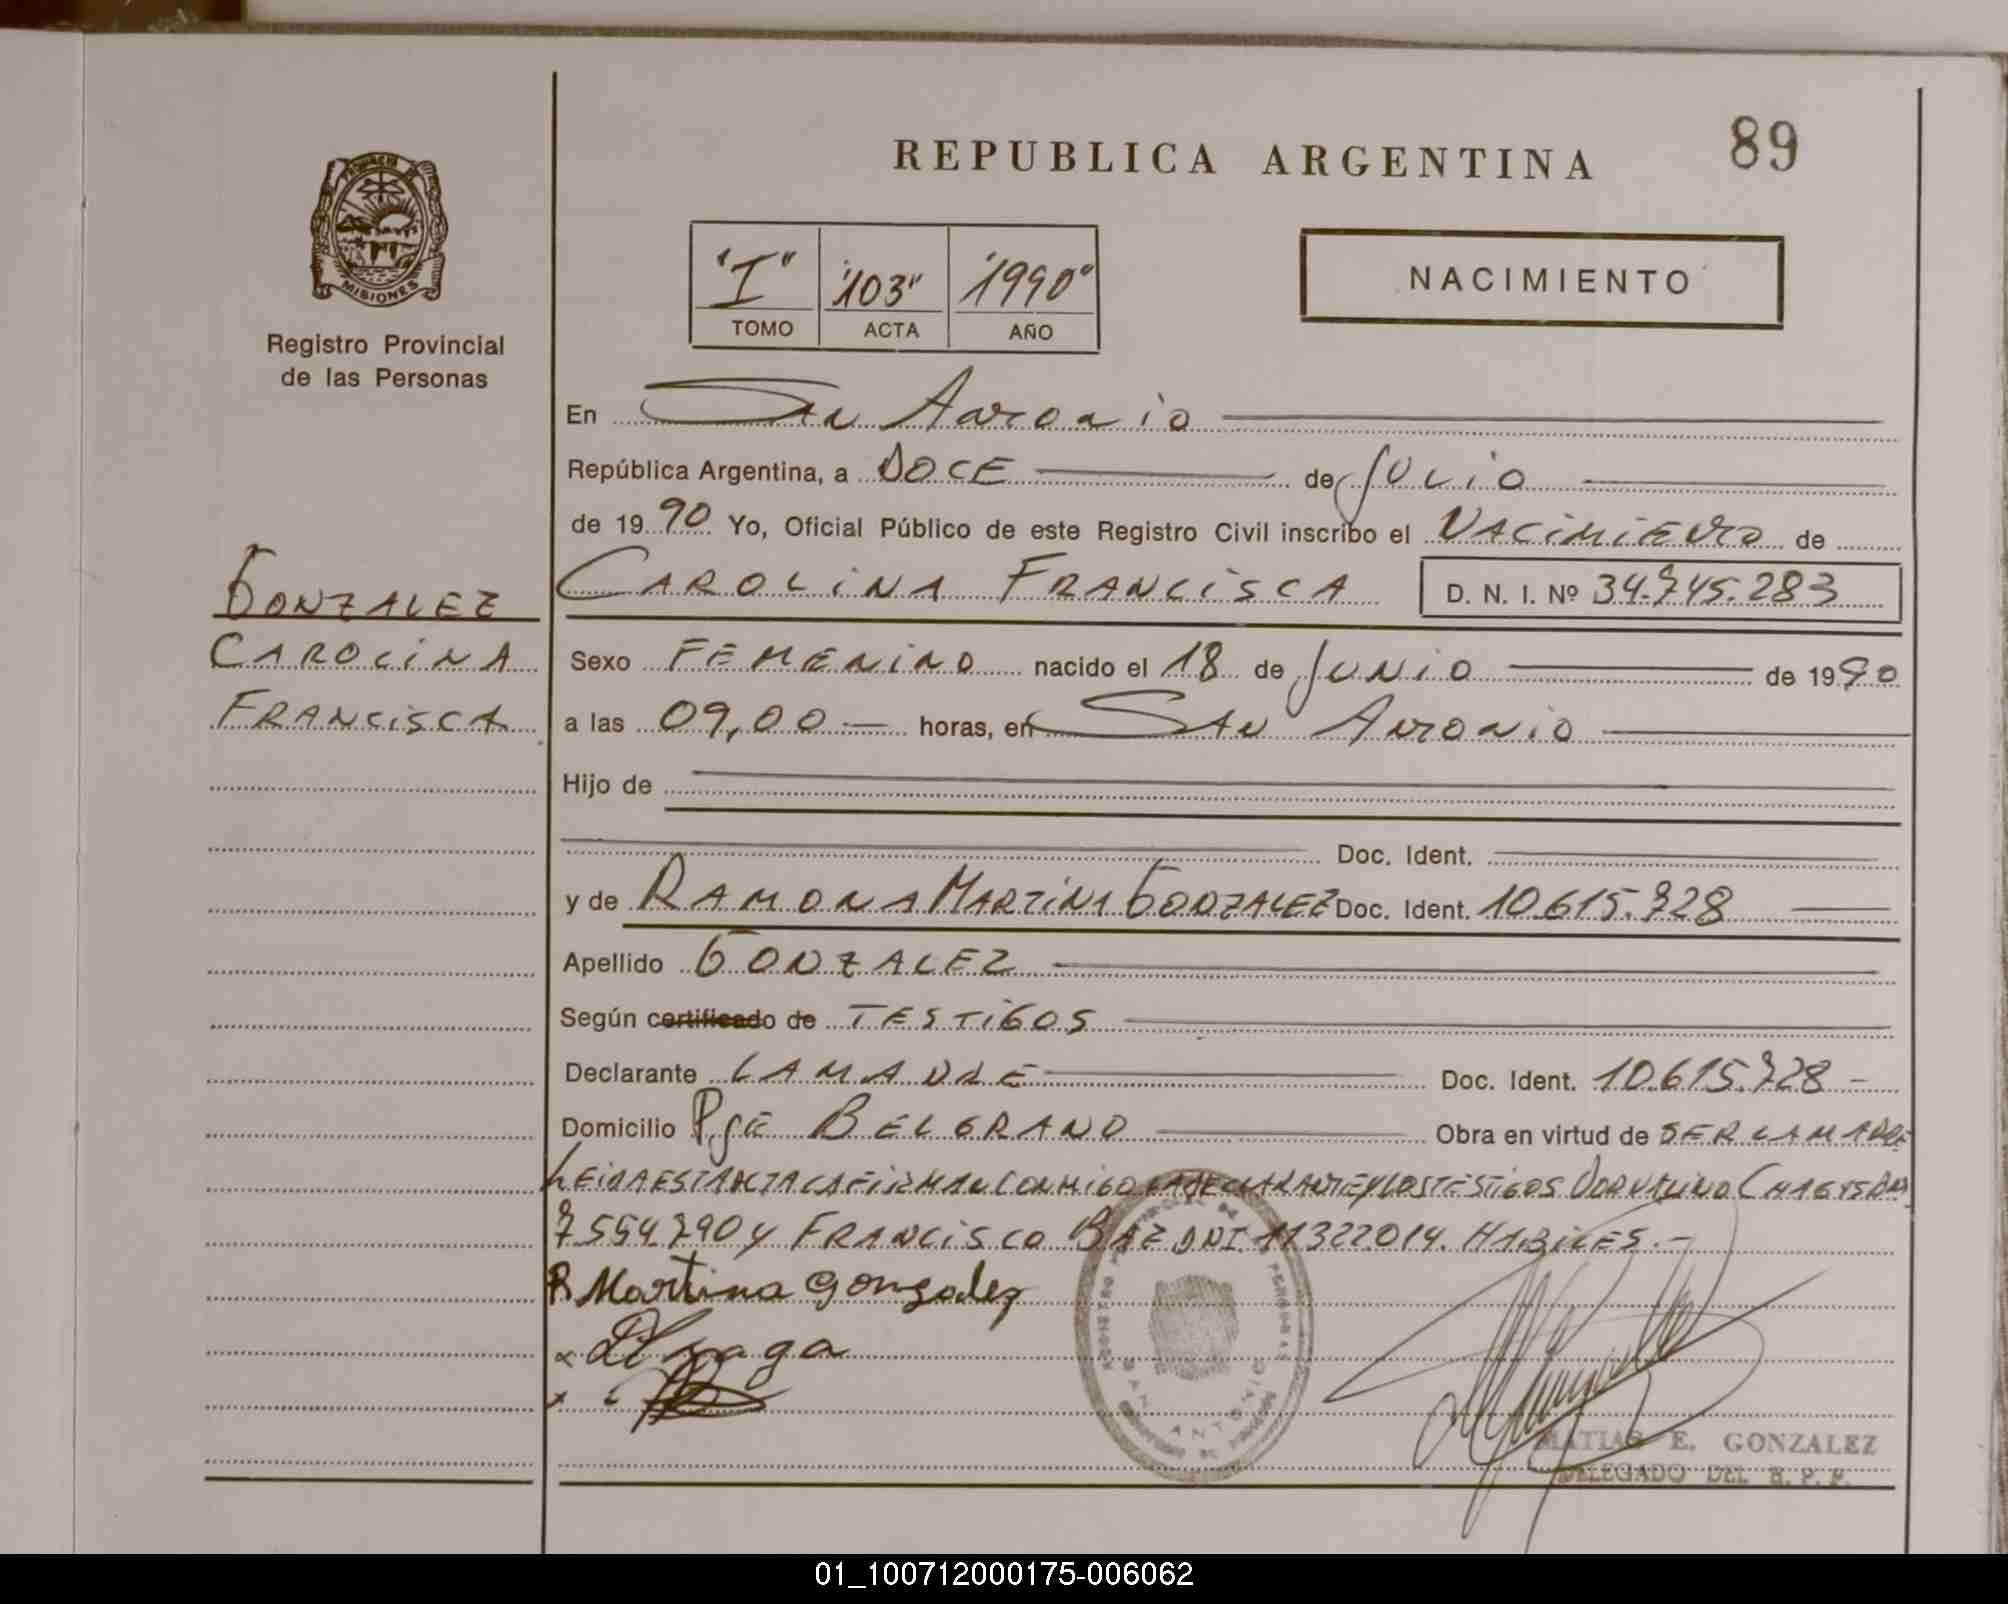 REPUBLICA ARGENTINA
89
MISIONES
Registro Provincial
de las Personas
"I" "103" "1990"
TOMO ACTA AÑO
NACIMIENTO
En San Antonio
República Argentina, a DOCE de JULIO
de 1990 Yo, Oficial Público de este Registro Civil inscribo el NACIMIENTO de
CAROLINA FRANCISCA D. N. I. Nº 34.745.283
GONZALEZ
CAROLINA
FRANCISCA
Sexo FEMENINO nacido el 18 de JUNIO de 1990
a las 09,00 horas, en SAN ANTONIO
Hijo de
Doc. Ident.
y de RAMONA MARTINA GONZALEZ Doc. Ident. 10.615.728
Apellido GONZALEZ
Según certificado de TESTIGOS
Declarante LA MADRE Doc. Ident. 10.615.728
Domicilio Pje BELGRANO Obra en virtud de SER LA MADRE
LEIDA ESTA ACTA LA FIRMAN CONMIGO LA DECLARANTE Y LOS TESTIGOS
7554790 Y FRANCISCO BAEZ DNI 11322014. HABILES.-
R Martina Gonzalez
SAN ANTONIO
MATIAS E. GONZALEZ
DELEGADO DEL R. P. P.
01_100712000175-006062